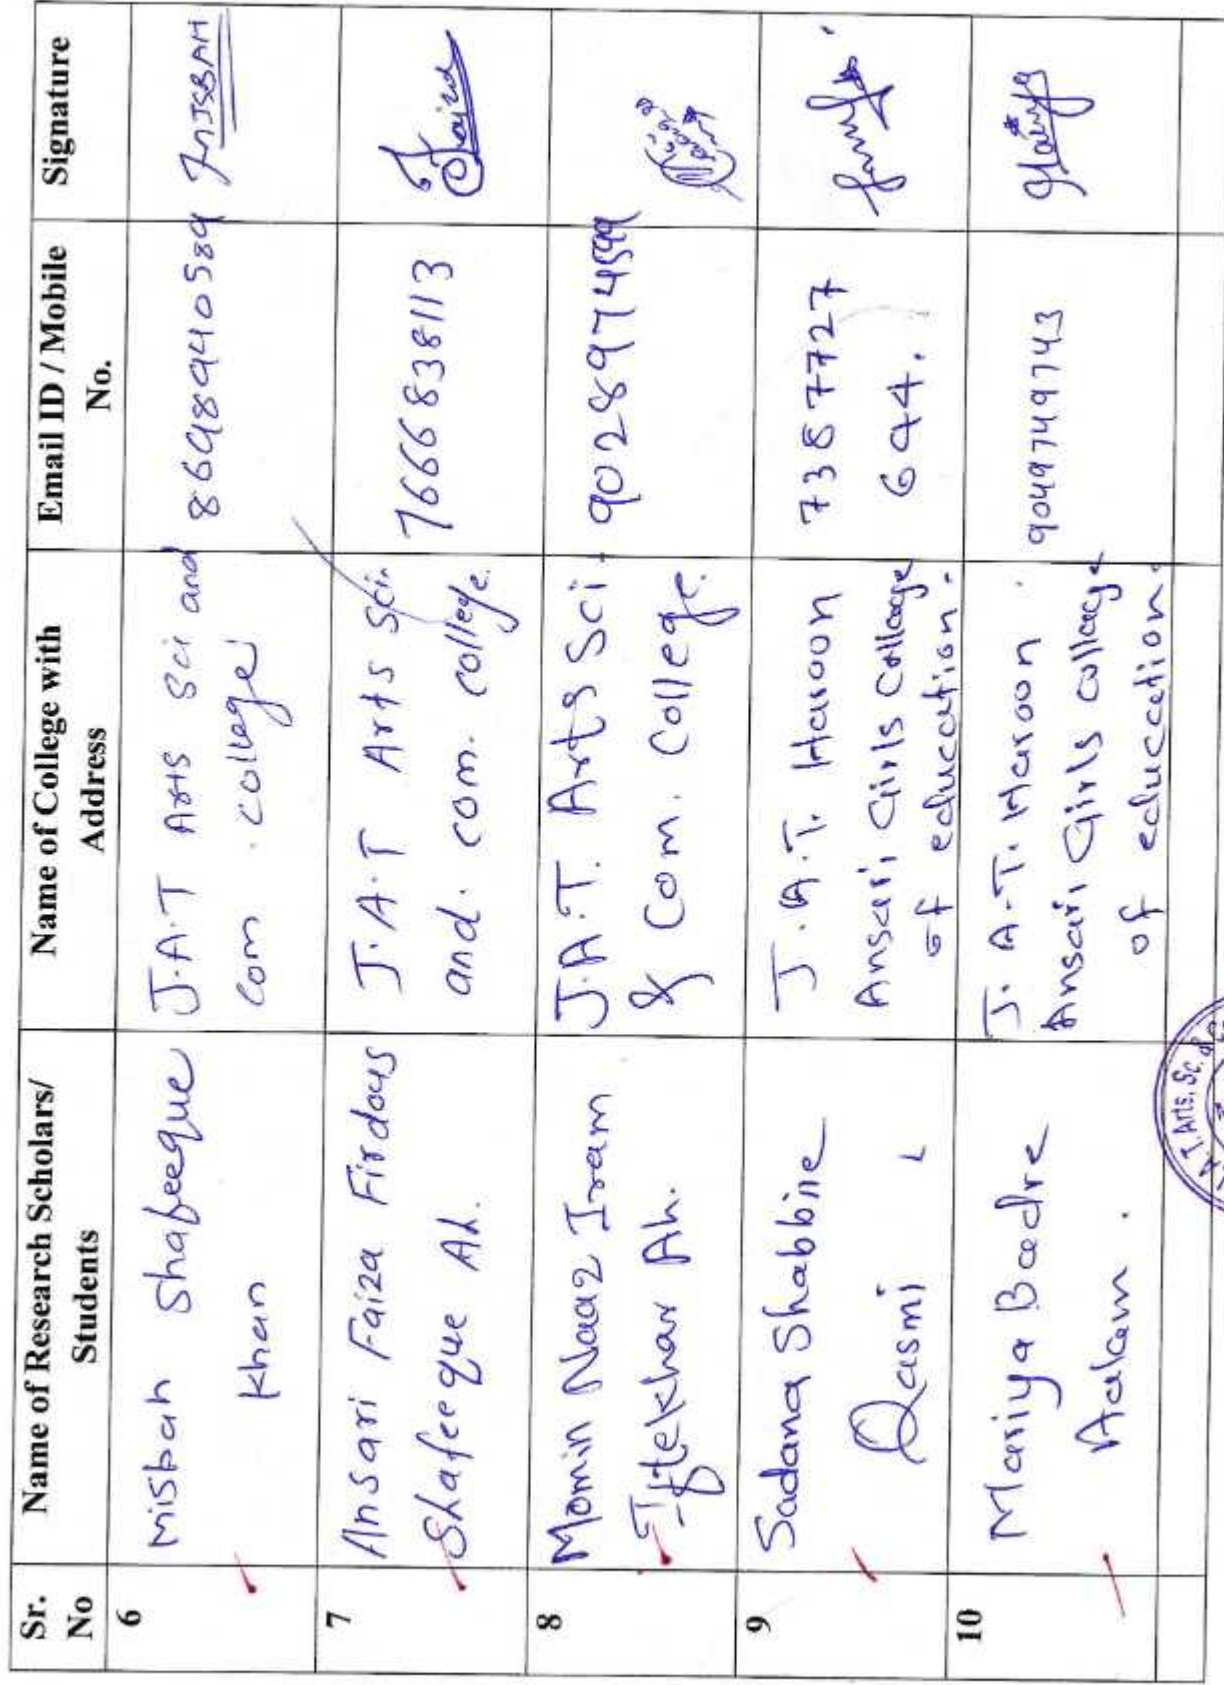 Sr. No
Name of Research Scholars/ Students
Name of College with Address
Email ID / Mobile No.
Signature
6
Misbah Shafeeque
Khan
J.A.T Arts Sci and
Com. college
8698940589
MISBAH
7
Ansari Faiza Firdous
Shafeeque Ah.
J.A.T Arts Sci.
and. com. college.
7666838113
Faiza
8
Momin Naaz Iram
Iftekhar Ah.
J.A.T. Arts Sci.
& Com. College.
9028974599
9
Sadana Shabbire
Qasmi
J.A.T. Haroon
Ansari Girls Collage
of education.
7387727
644.
10
Mariya Badre
Aalam.
J.A.T. Haroon
Ansari Girls collage
of education.
9049749743
A.T. Arts, Sc. &